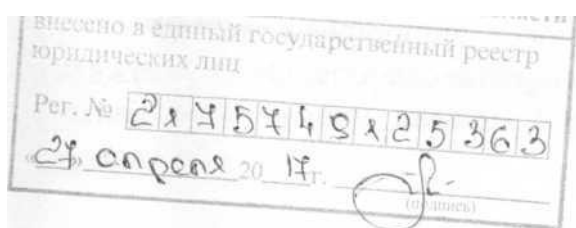 внесено в единый государственный реестр
юридических лиц
Рег. № 2175749125363
«27» апреля 20 17 г.
(подпись)